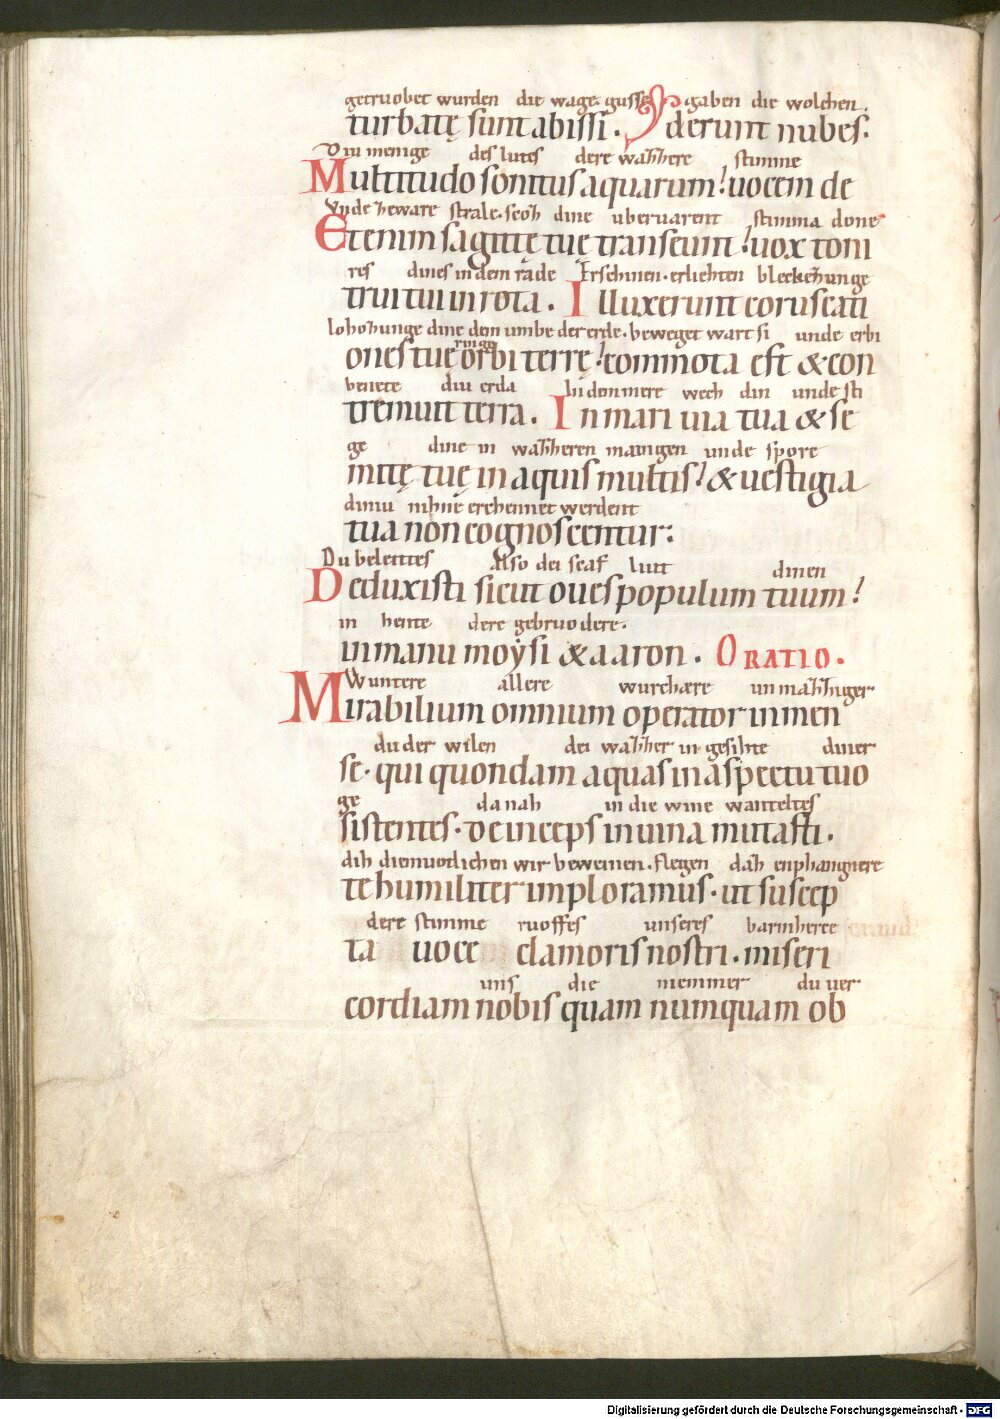 getruobet wurden die wage gusse gaben die wolchen.
turbatę sunt abissi. Dederunt nubes:
Diu menige des lutes dere wazzere stimme
Multitudo sonitus aquarum! uocem de
Vnde zeware strale. seoh dine uberuarent stimma done
Etenim sagittę tuę transeunt! uox toni
ris dines in dem rade Erschinen. erliehten bleckezunge
trui tui in rota. Illuxerunt coruscati
lohozunge dine dem umbe der erde. beweget wart si unde erbi
ringe
ones tuę orbi terrę! commota est & con
benete diu erda In dem mere wech din unde sti
tremuit terra. In mari uia tua & se
ge dine in wazzeren manigen unde spore
mitę tuę in aquis multis! & uestigia
diniu nihne erchennet werdent
tua non cognoscentur:
Du beleittes Also dei scaf liut dinen
Deduxisti sicut oues populum tuum!
in hente dere gebruodere.
in manu moẏsi & aaron. ORATIO.
Wuntere allere wurchære unmazziger
Mirabilium omnium operator inmen
du der wilen dei wazzer in gesihte diner
se. qui quondam aquas in aspectu tuo
ge da nah in die wine wanteltes
sistentes. deinceps in uina mutasti.
dih diemuotlichen wir beweinen. flegen daz enphangnere
te humiliter imploramus. ut suscep
dere stimme ruoffes unseres barmherce
ta uoce clamoris nostri. miseri
uns die niemmer du uer
cordiam nobis quam numquam ob
Digitalisierung gefördert durch die Deutsche Forschungsgemeinschaft - DFG